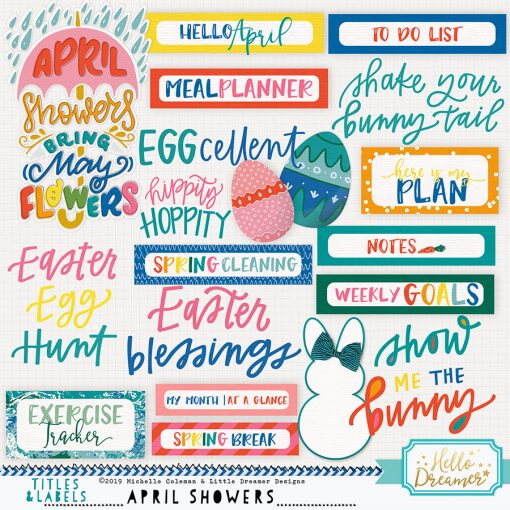 APRIL
Showers
BRING
May
FLOWERS
HELLO April
TO DO LIST
MEAL PLANNER
shake your
bunny tail
EGGcellent
here is my
PLAN
hippity
HOPPITY
NOTES
Easter
Egg
Hunt
SPRING CLEANING
WEEKLY GOALS
Easter
blessings
show
ME THE
bunny
MY MONTH | AT A GLANCE
EXERCISE
Tracker
SPRING BREAK
Hello
Dreamer
TITLES
& LABELS
©2019 Michelle Coleman & Little Dreamer Designs
APRIL SHOWERS